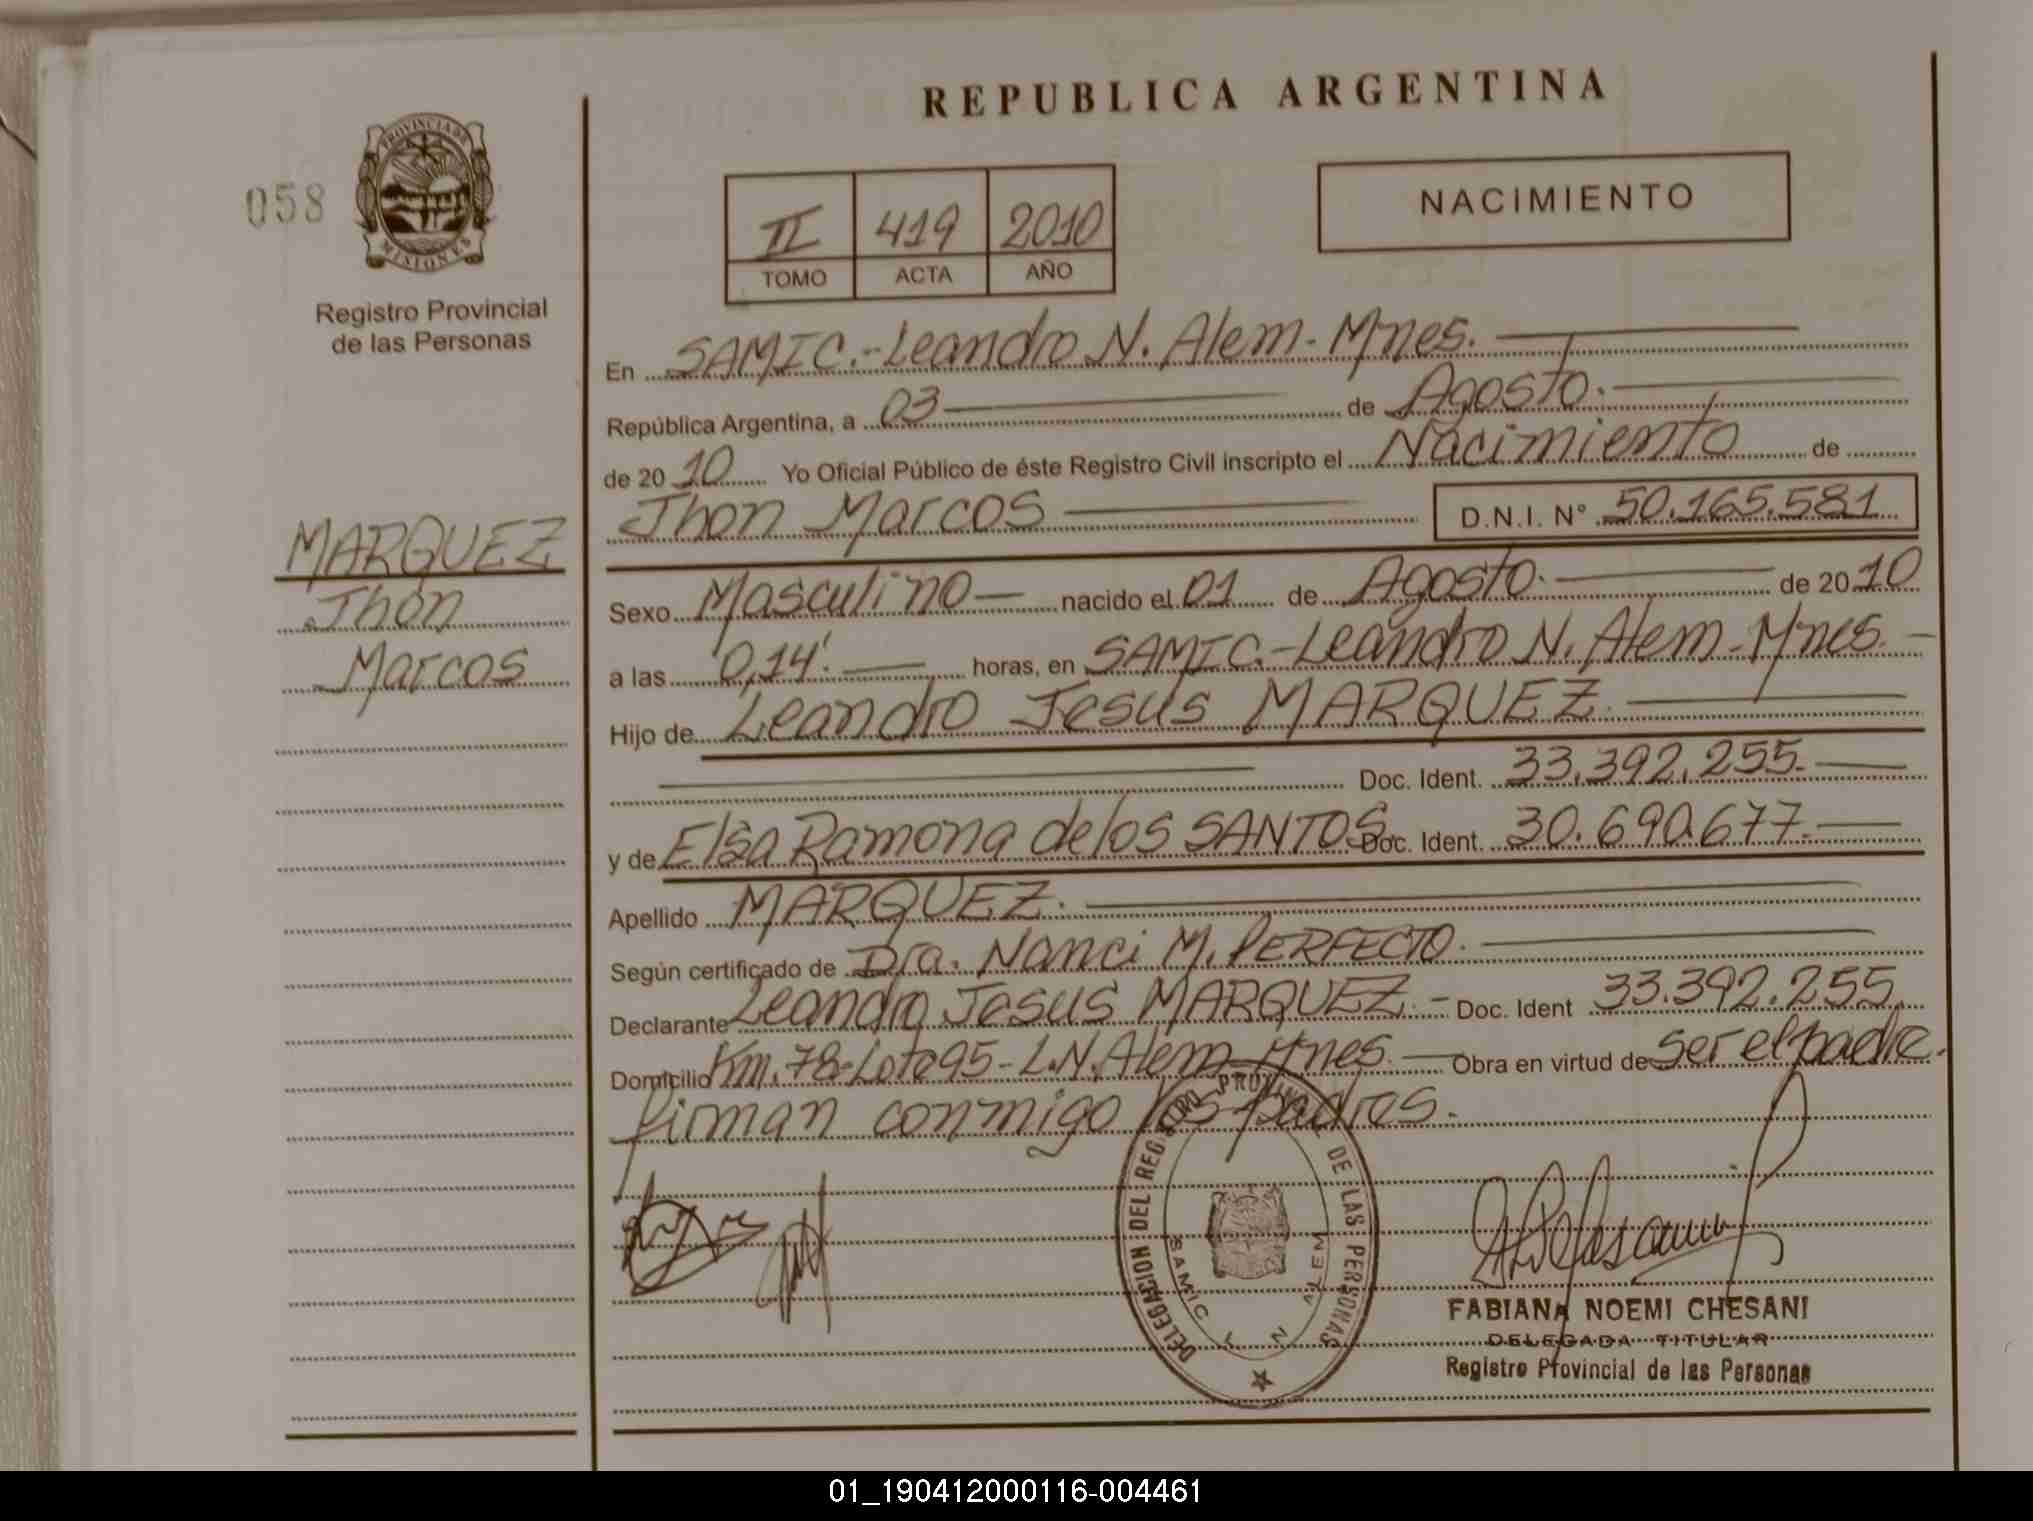 REPUBLICA ARGENTINA
058
PROVINCIA DE
MISIONES
Registro Provincial
de las Personas
II 419 2010
TOMO ACTA AÑO
NACIMIENTO
En SAMIC.-Leandro N. Alem-Mnes.
República Argentina, a 03 de Agosto.
de 2010 Yo Oficial Público de éste Registro Civil inscripto el Nacimiento de
Jhon Marcos D.N.I. N° 50.165.581
MARQUEZ
Jhon
Marcos
Sexo Masculino nacido el 01 de Agosto. de 2010
a las 0,14'. horas, en SAMIC.-Leandro N. Alem-Mnes.-
Hijo de Leandro Jesus MARQUEZ.
Doc. Ident. 33.392.255.
y de Elsa Ramona de los SANTOS. Doc. Ident. 30.690.677.
Apellido MARQUEZ.
Según certificado de Dra. Nanci M. PERFECTO.
Declarante Leandro Jesus MARQUEZ.- Doc. Ident 33.392.255.
Domicilio Km. 78-Lote 95-L.N. Alem-Mnes. Obra en virtud de ser el padre.
firman conmigo los padres.
DELEGACION DEL REGISTRO PROVINCIAL DE LAS PERSONAS
SAMIC L N ALEM
FABIANA NOEMI CHESANI
DELEGADA TITULAR
Registro Provincial de las Personas
01_190412000116-004461